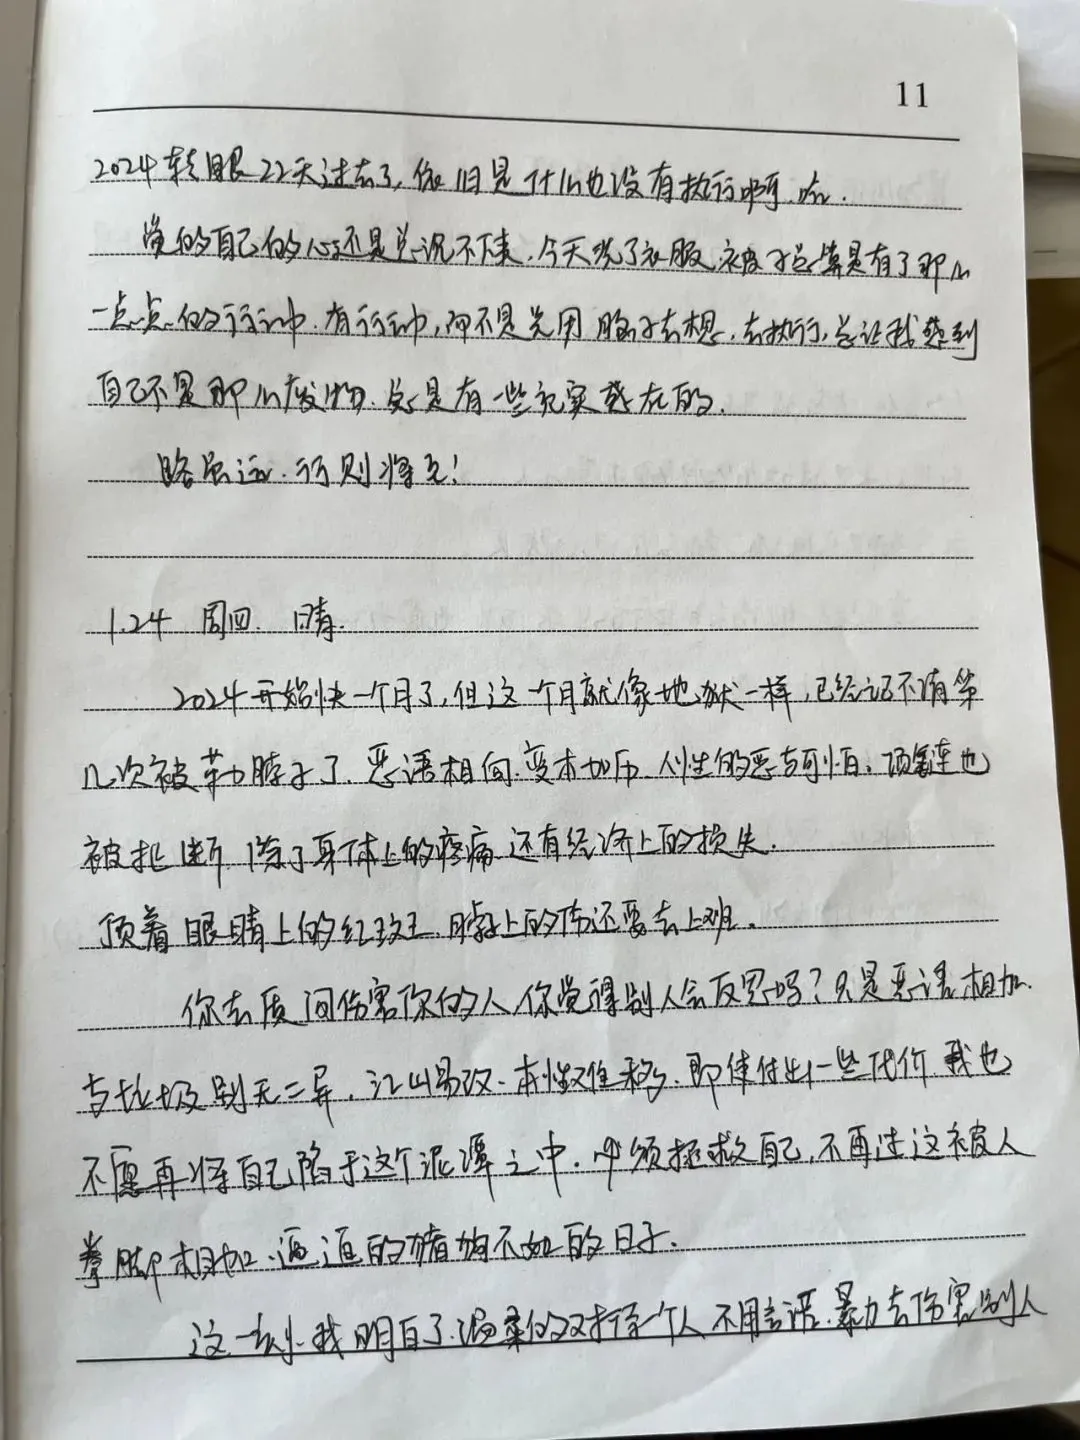 11
2024转眼22天过去了,依旧是什么也没有执行啊.
觉的自己的心还是总沉不下来.今天洗了衣服,被子总算是有了那么
一点点的行动.有行动,而不是光用脑子去想,去执行,总让我感到
自己不是那么废物.总是有一些充实感在的.
路虽远.行则将至!
1.24 周四. 晴.
2024开始快一个月了,但这一个月就像地狱一样,已经记不清第
几次被勒脖子了.恶语相向.变本加历.人性的恶与可怕.项链也
被扯断,除了身体上的疼痛,还有经济上的损失.
顶着眼睛上的红斑,脖子上的伤还要去上班.
你去质问伤害你的人,你觉得别人会反思吗?只是恶语相加.
与垃圾别无二异,江山易改.本性难移.即使付出一些代价,我也
不愿再将自己陷于这个泥潭之中.必须拯救自己,不再过这被人
拳脚相加.逼迫的猪狗不如的日子.
这一刻我明白了.温柔的对待一个人,不用言语.暴力去伤害别人